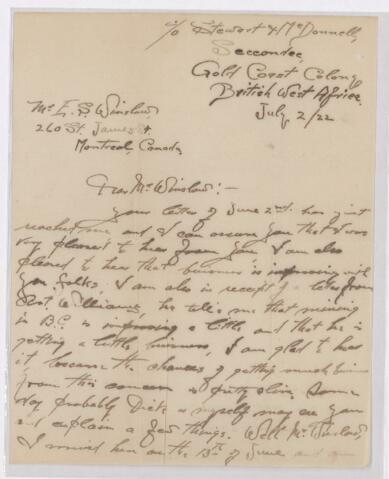 c/o Stewart & McDonnell,
Seccondee,
Gold Coast Colony
British West Africa
July 2/22
Mr E. S. Winslow,
260 St. James St
Montreal, Canada
Dear Mr Winslow:-
Your letter of June 2nd. has just
reached me and I can assure you that I was
very pleased to hear from you. I am also
pleased to hear that business is improving with
you folks. I am also in receipt of a letter from
Williams, he tells me that mining
in B.C. is improving a little and that he is
getting a little business, I am glad to hear
it because the chances of getting much
from this concern is pretty slim. Some
day probably Dick or myself may see you
and explain a few things. Well Mr Winslow,
I arrived here on the 13th of June and